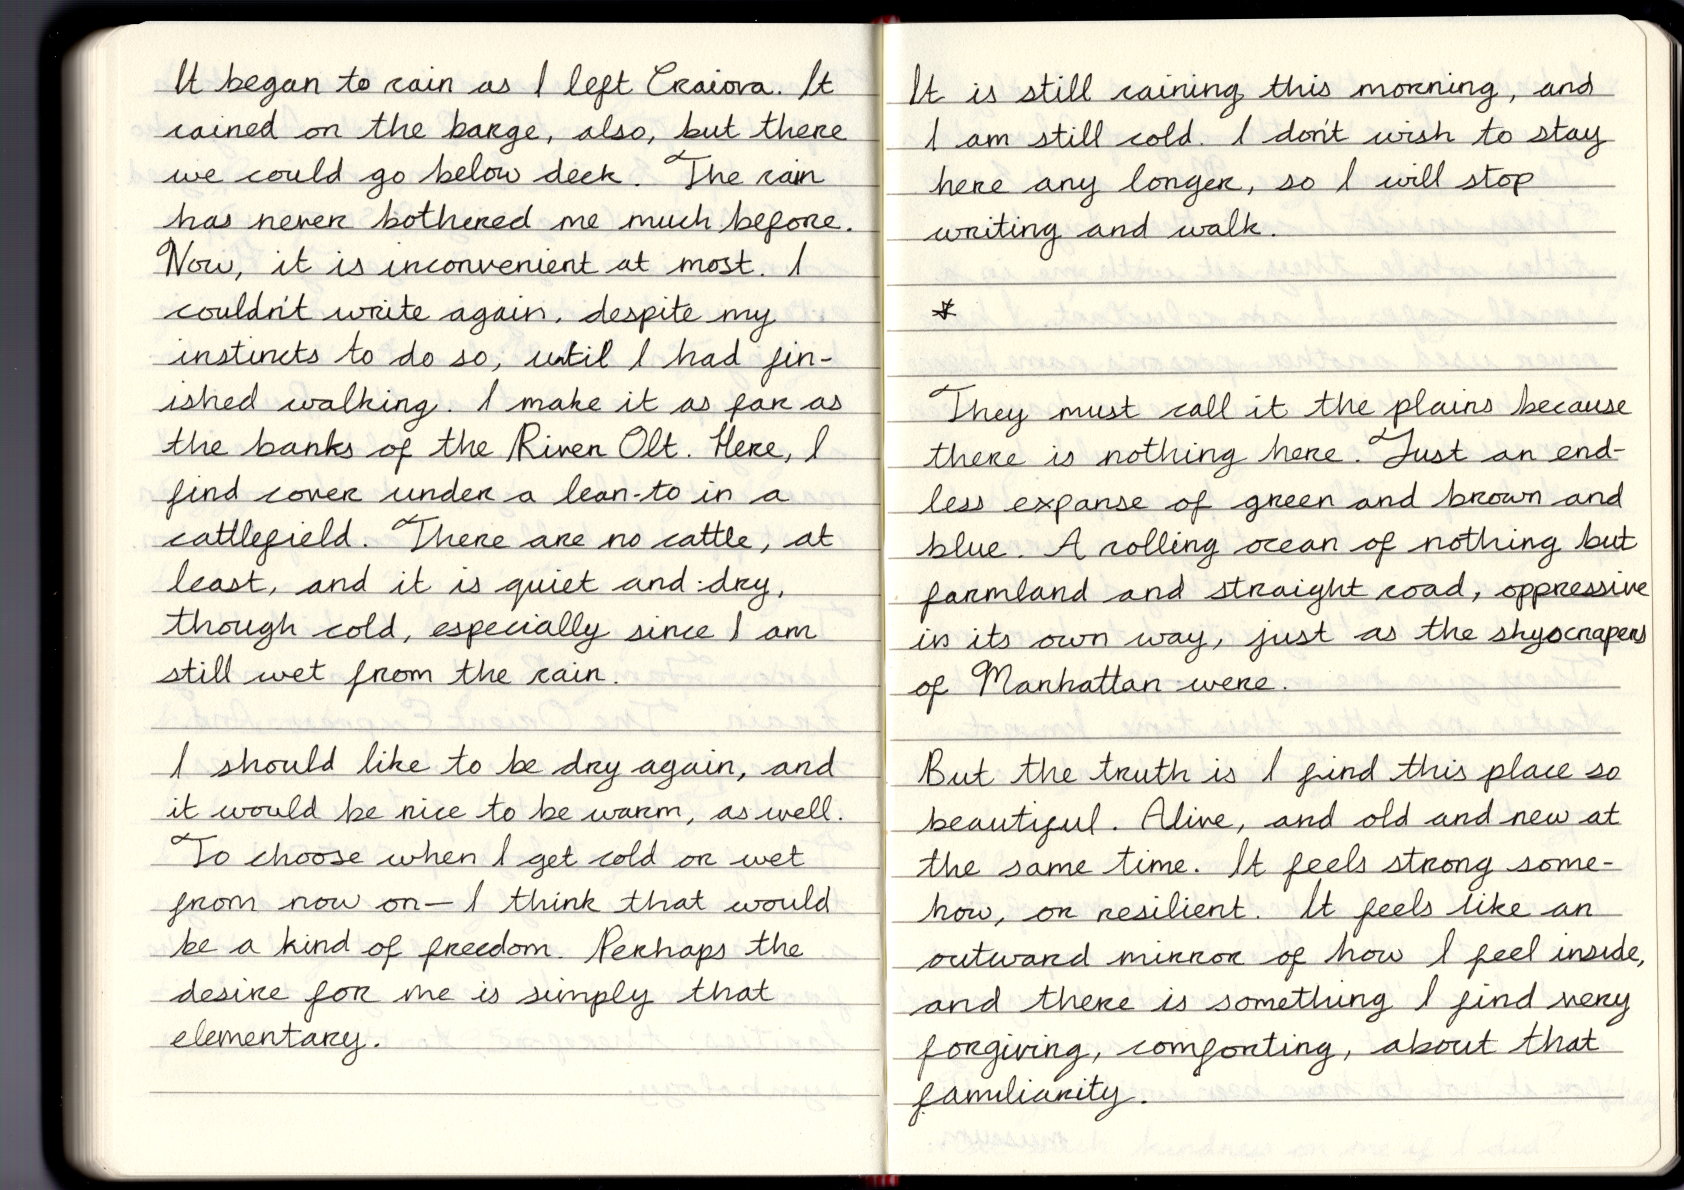 It began to rain as I left Craiova. It
rained on the barge, also, but there
we could go below deck. The rain
has never bothered me much before.
Now, it is inconvenient at most. I
couldn't write again, despite my
instincts to do so, until I had fin-
ished walking. I make it as far as
the banks of the River Olt. Here, I
find cover under a lean-to in a
cattlefield. There are no cattle, at
least, and it is quiet and dry,
though cold, especially since I am
still wet from the rain.
I should like to be dry again, and
it would be nice to be warm, as well.
To choose when I get cold or wet
from now on— I think that would
be a kind of freedom. Perhaps the
desire for me is simply that
elementary.
It is still raining this morning, and
I am still cold. I don't wish to stay
here any longer, so I will stop
writing and walk.
*
They must call it the plains because
there is nothing here. Just an end-
less expanse of green and brown and
blue. A rolling ocean of nothing but
farmland and straight road, oppressive
in its own way, just as the skyscrapers
of Manhattan were.
But the truth is I find this place so
beautiful. Alive, and old and new at
the same time. It feels strong some-
how, or resilient. It feels like an
outward mirror of how I feel inside,
and there is something I find very
forgiving, comforting, about that
familiarity.